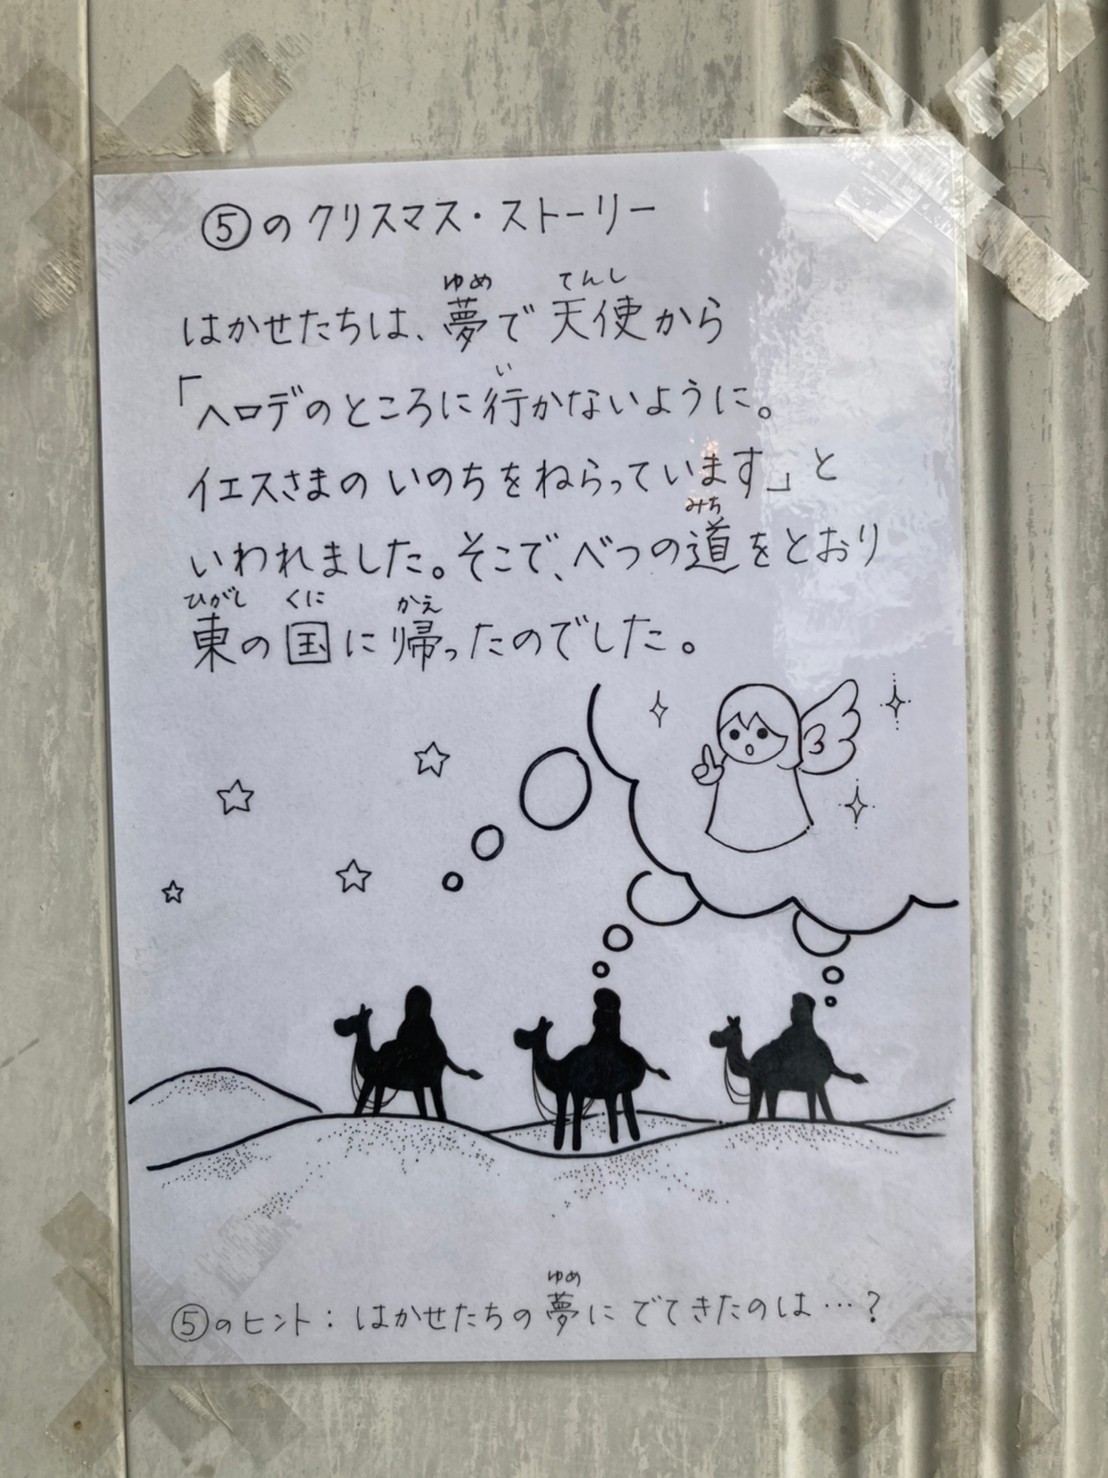 ⑤のクリスマス・ストーリー
はかせたちは、夢で天使から
ゆめ てんし
「ヘロデのところに行かないように。
い
イエスさまのいのちをねらっています」と
いわれました。そこで、べつの道をとおり
みち
東の国に帰ったのでした。
ひがし くに かえ
⑤のヒント：はかせたちの夢にでてきたのは…？
ゆめ